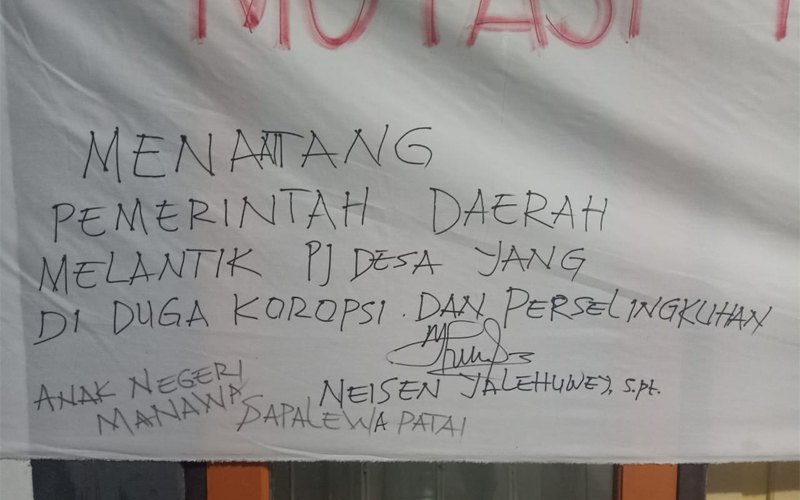 MUTASI
MENATTANG
PEMERINTAH DAERAH
MELANTIK PJ DESA YANG
DI DUGA KOROPSI. DAN PERSELINGKUHAN
NEISEN YALEHUWEY, S.Pt.
ANAK NEGERI
MANAWA SAPALEWA PATAI